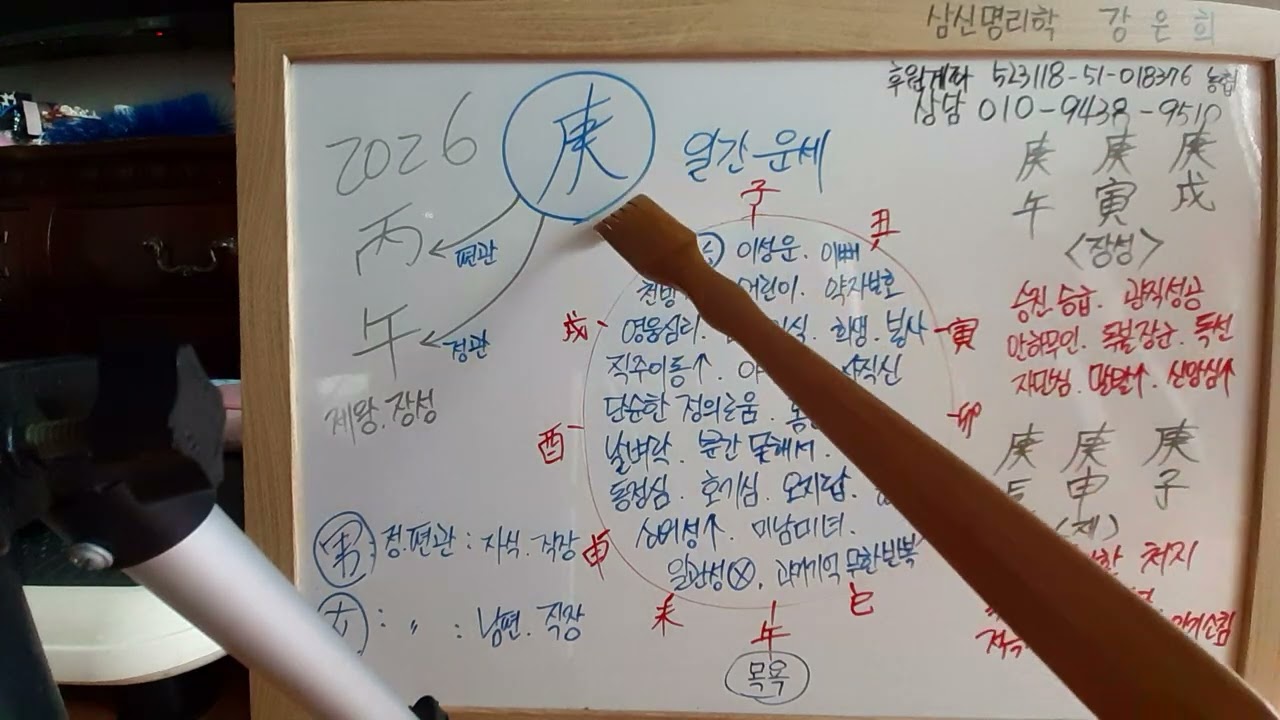 삼신명리학 강은희
후원계좌 523118-51-018376 농협
상담 010-9438-9510
2026 庚 일간 운세
丙 편관
午 정관
제왕.장성
男: 정.편관: 자식.직장
女: 〃 : 남편.직장
子
丑
寅
卯
巳
午
未
申
酉
戌
이성운. 이뻐
어린이. 약자보호
영웅심리. 희생. 봉사
직주이동↑.
단순한 정의로움.
날벼락. 분간 못해서.
동정심. 호기심. 오지랖.
미남미녀.
일관성ⓧ. 과메기억 무한반복
목욕
庚 庚 庚
午 寅 戌
<장성>
승진 승급. 관직성공
안하무인. 독불장군. 독선
자만심. 망발↑. 신앙심↑
庚 庚 庚
申 子
처지